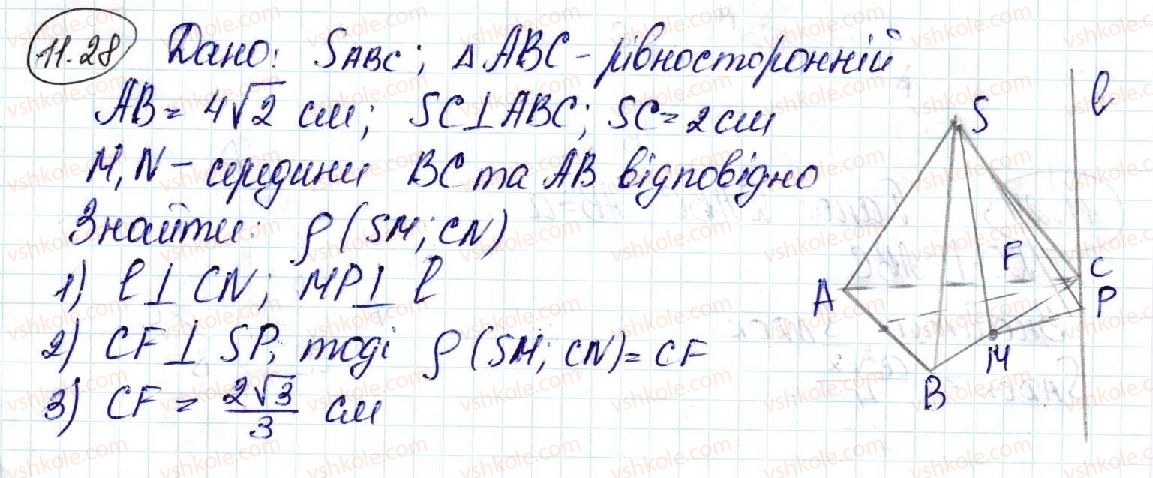 11.28 Дано: SABC; △ABC - рівносторонній
AB = 4√2 см; SC⊥ABC; SC = 2 см
M, N - середини BC та AB відповідно
Знайти: ρ(SM; CN)
1) l⊥CN; MP⊥l
2) CF⊥SP, тоді ρ(SM; CN) = CF
3) CF = 2√3/3 см
S
l
F
C
A
P
M
B
vshkole.com